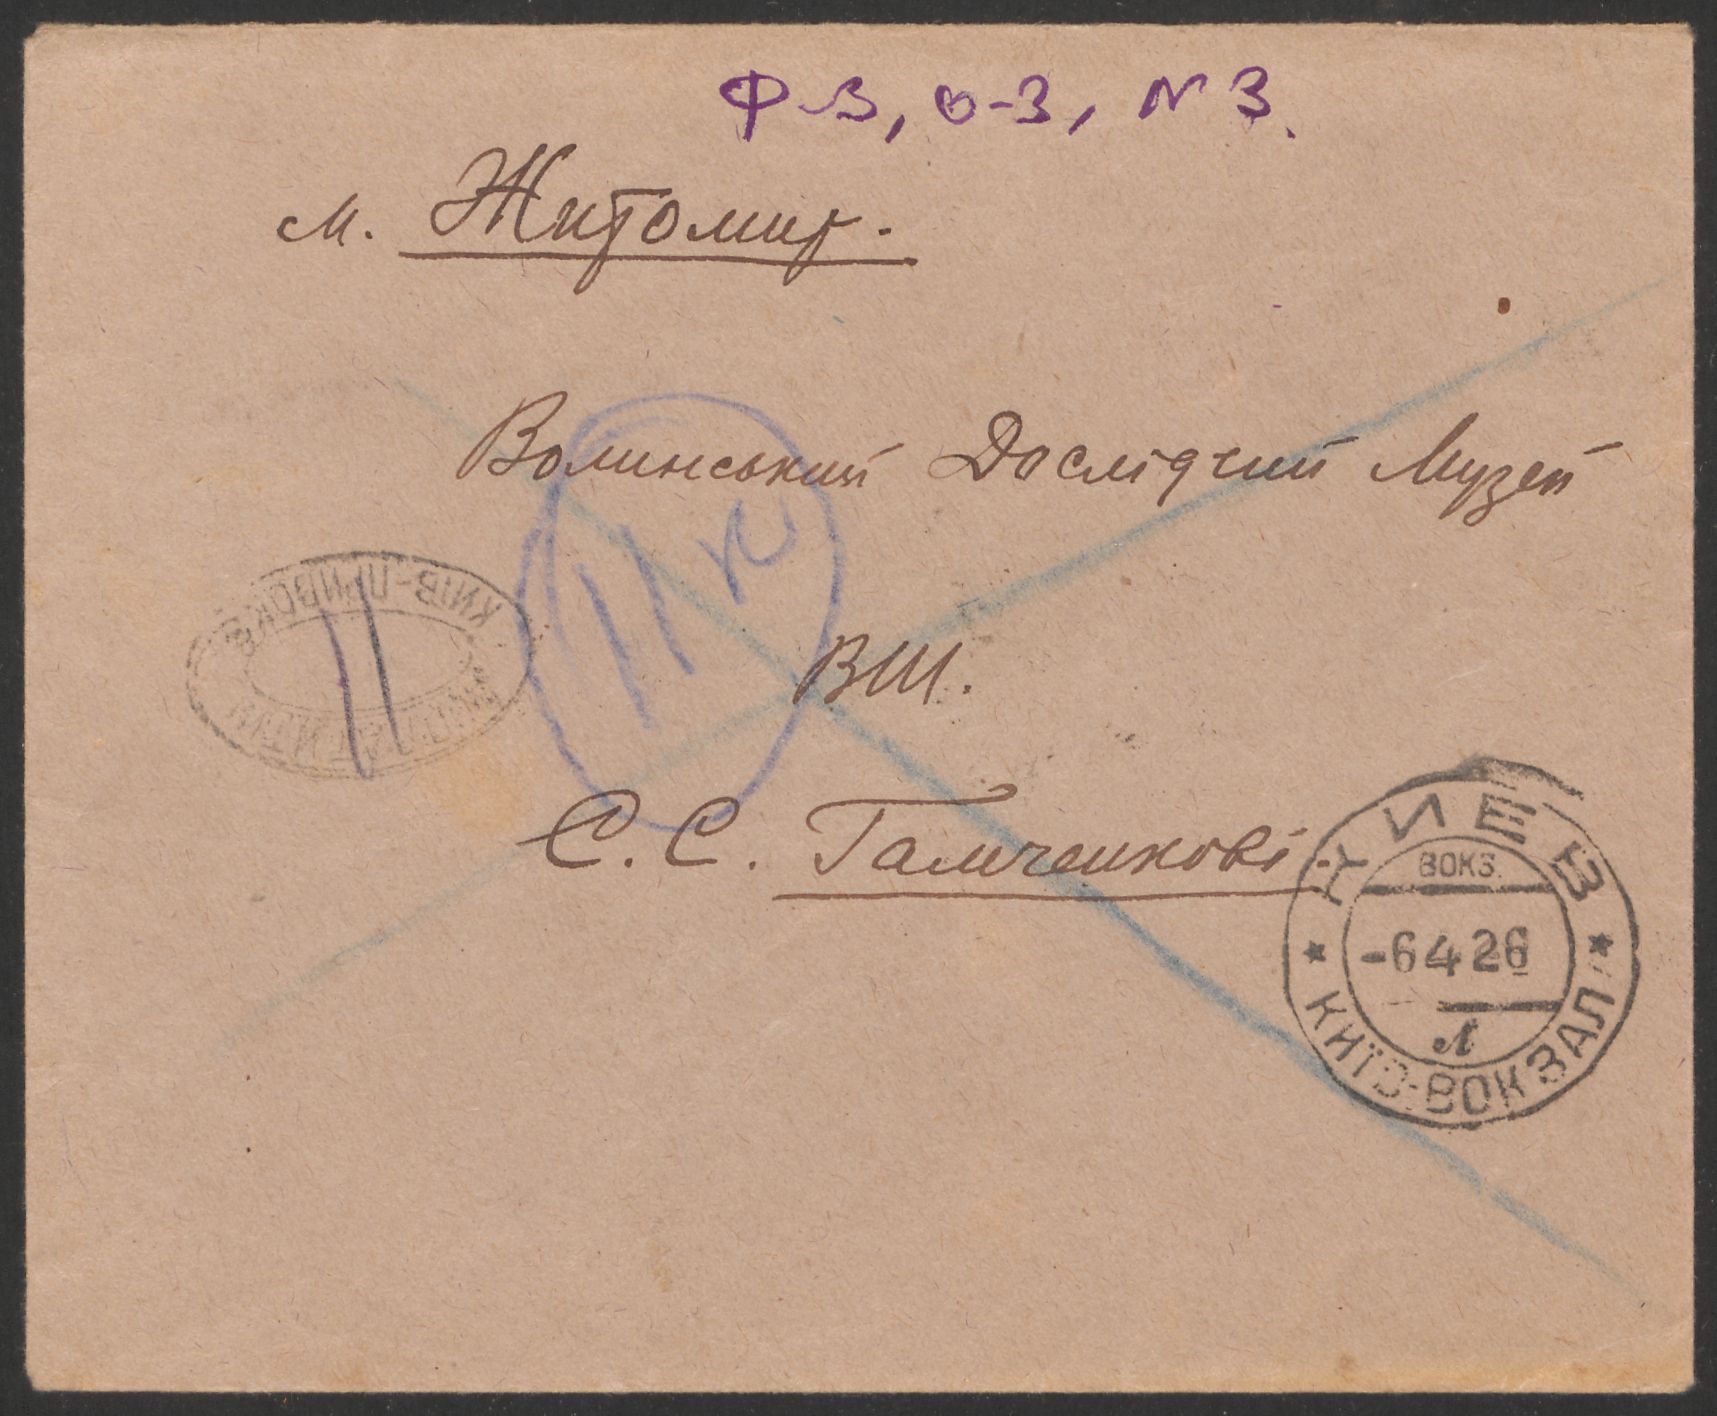 Ф-3, о-3, N 3.
м. Житомир.
Волинський Дослідчий Музей
11 к
КИЇВ-ПРИВОКЗ
11
ВШ.
С. С. Гамченкові
КИЕВ
ВОКЗ.
-6 4 26
Л
КИЇВ-ВОКЗАЛ